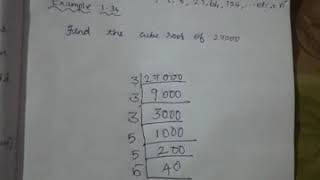 Example 1.34
Find the cube root of 27000
3 27000
3 9000
3 3000
5 1000
5 200
5 40